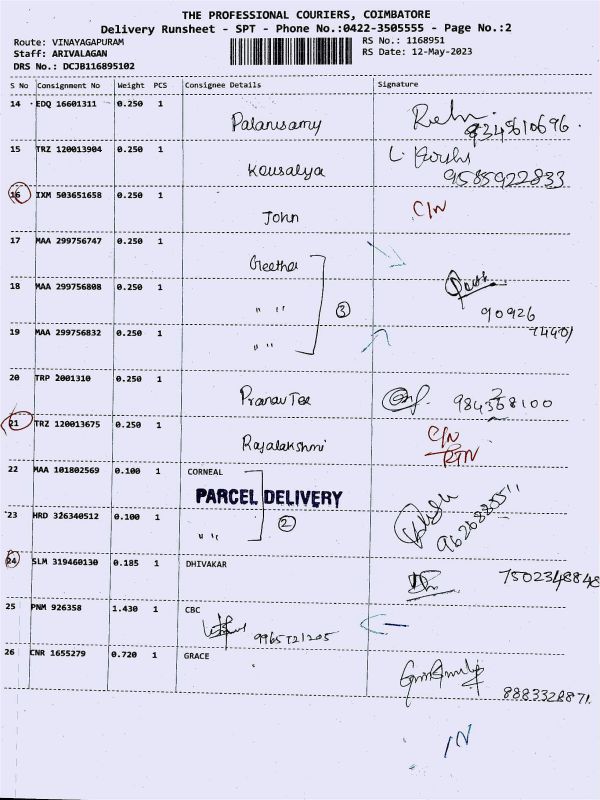 THE PROFESSIONAL COURIERS, COIMBATORE
Delivery Runsheet - SPT - Phone No.:0422-3505555 - Page No.:2
Route: VINAYAGAPURAM RS No.: 1168951
Staff: ARIVALAGAN RS Date: 12-May-2023
DRS No.: DCJB116895102
S No Consignment No Weight PCS Consignee Details Signature
14 EDQ 16601311 0.250 1
Palanisamy 9345610696
15 TRZ 120013904 0.250 1
Kousalya 9585922833
16 IXM 503651658 0.250 1
John C/N
17 MAA 299756747 0.250 1
Geetha
18 MAA 299756808 0.250 1
" " 3 90926
19 MAA 299756832 0.250 1 74401
" "
20 TRP 2001310 0.250 1
Pranav Tee
21 TRZ 120013675 0.250 1 C/N
Rajalakshmi RTN
22 MAA 101802569 0.100 1 CORNEAL
PARCEL DELIVERY
23 HRD 326340512 0.100 1 2
" "
24 SLM 319460130 0.185 1 DHIVAKAR 7502348848
25 PNM 926358 1.430 1 CBC
9965721205
26 CNR 1655279 0.720 1 GRACE
8883328871
IN